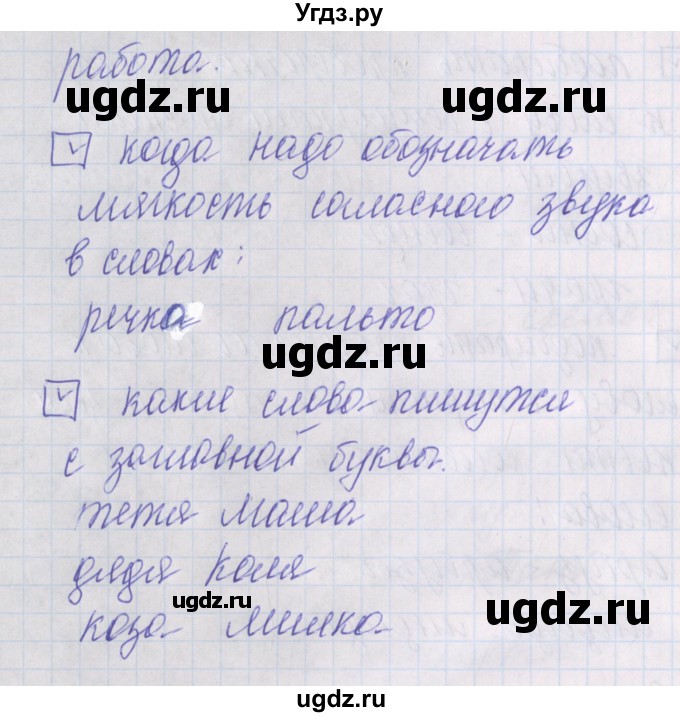 Угдз.ру
работа.
ugdz.ru ugdz.ru
когда надо обозначать
мягкость согласного звука
в словах:
речка пальто
ugdz.ru
какие слова пишутся
с заглавной буквы.
тетя Маша
дядя Коля
ugdz.ru ugdz.ru
коза Милка
ugdz.ru